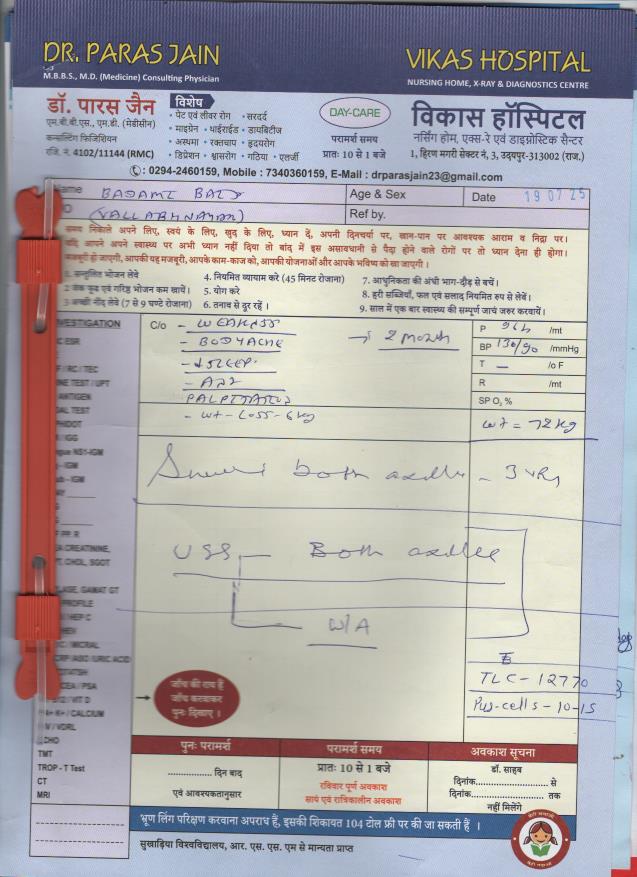 DR. PARAS JAIN
M.B.B.S., M.D. (Medicine) Consulting Physician
VIKAS HOSPITAL
NURSING HOME, X-RAY & DIAGNOSTICS CENTRE
डॉ. पारस जैन
एम.बी.बी.एस., एम.डी. (मेडीसीन)
कन्सल्टिंग फिजिशियन
रजि. नं. 4102/11144 (RMC)
विशेष
• पेट एवं लीवर रोग • सरदर्द
• माइग्रेन • थाईराईड • डायबिटीज
• अस्थमा • रक्तचाप • हृदयरोग
• डिप्रेशन • श्वासरोग • गठिया • एलर्जी
DAY-CARE
परामर्श समय
प्रातः 10 से 1 बजे
विकास हॉस्पिटल
नर्सिंग होम, एक्स-रे एवं डाइग्नोस्टिक सैन्टर
1, हिरण मगरी सेक्टर नं. 3, उदयपुर-313002 (राज.)
: 0294-2460159, Mobile : 7340360159, E-Mail : drparasjain23@gmail.com
Name BADAMI BAI
Age & Sex
Date 19 07 25
(VALLABHNAGAR)
Ref by.
समय निकाले अपने लिए, स्वयं के लिए, खुद के लिए, ध्यान दें, अपनी दिनचर्या पर, खान-पान पर आवश्यक आराम व निद्रा पर।
यदि आपने अपने स्वास्थ्य पर अभी ध्यान नहीं दिया तो बांद में इस असावधानी से पैदा होने वाले रोगों पर तो ध्यान देना ही होगा।
मजबूरी हो जाएगी, आपकी यह मजबूरी, आपके काम-काज को, आपकी योजनाओं और आपके भविष्य को खा जाएगी।
1. सन्तुलित भोजन लेवे
4. नियमित व्यायाम करे (45 मिनट रोजाना)
7. आधुनिकता की अंधी भाग-दौड़ से बचें।
2. जंक फूड एवं गरिष्ठ भोजन कम खायें।
5. योग करे
8. हरी सब्जियाँ, फल एवं सलाद नियमित रुप से लेवें।
3. अच्छी नींद लेवे (7 से 9 घण्टे रोजाना)
6. तनाव से दूर रहें।
9. साल में एक बार स्वास्थ्य की सम्पूर्ण जाचं जरुर करवायें।
INVESTIGATION
ESR
/ RC / TEC
URINE TEST / UPT
ANTIGEN
TEST
IGG
NS1-IGM
- IGM
- IGM
PP R
CREATININE,
CHOL, SGOT
GAMAT GT
PROFILE
HEP C
/ MICRAL
CRP /ASO /URIC ACID
CEA / PSA
B12 / VIT D
NA+ K+ / CALCIUM
HIV / VDRL
ECHO
TMT
TROP - T Test
CT
MRI
C/o - WEAKNESS
- BODYACHE
→ 2 MONTH
- ↓SLEEP
PALPITATION
- WT - LOSS - 6 kg
P 96 /mt
BP 130/90 /mmHg
T — /o F
R /mt
SP O₂ %
WT = 72 kg
both axilla - 3 YRS
USG - Both axilla
W/A
TLC - 12770
Pus-cells - 10-15
जाँच की राय हैं
जाँच करवाकर
पुनः दिखाए।
पुनः परामर्श
................ दिन बाद
एवं आवश्यकतानुसार
परामर्श समय
प्रातः 10 से 1 बजे
रविवार पूर्ण अवकाश
सायं एवं रात्रिकालीन अवकाश
अवकाश सूचना
डॉ. साहब
दिनांक.......................... से
दिनांक.......................... तक
नहीं मिलेंगे
भ्रूण लिंग परिक्षण करवाना अपराध हैं, इसकी शिकायत 104 टोल फ्री पर की जा सकती हैं।
सुखाड़िया विश्वविद्यालय, आर. एस. एस. एम से मान्यता प्राप्त